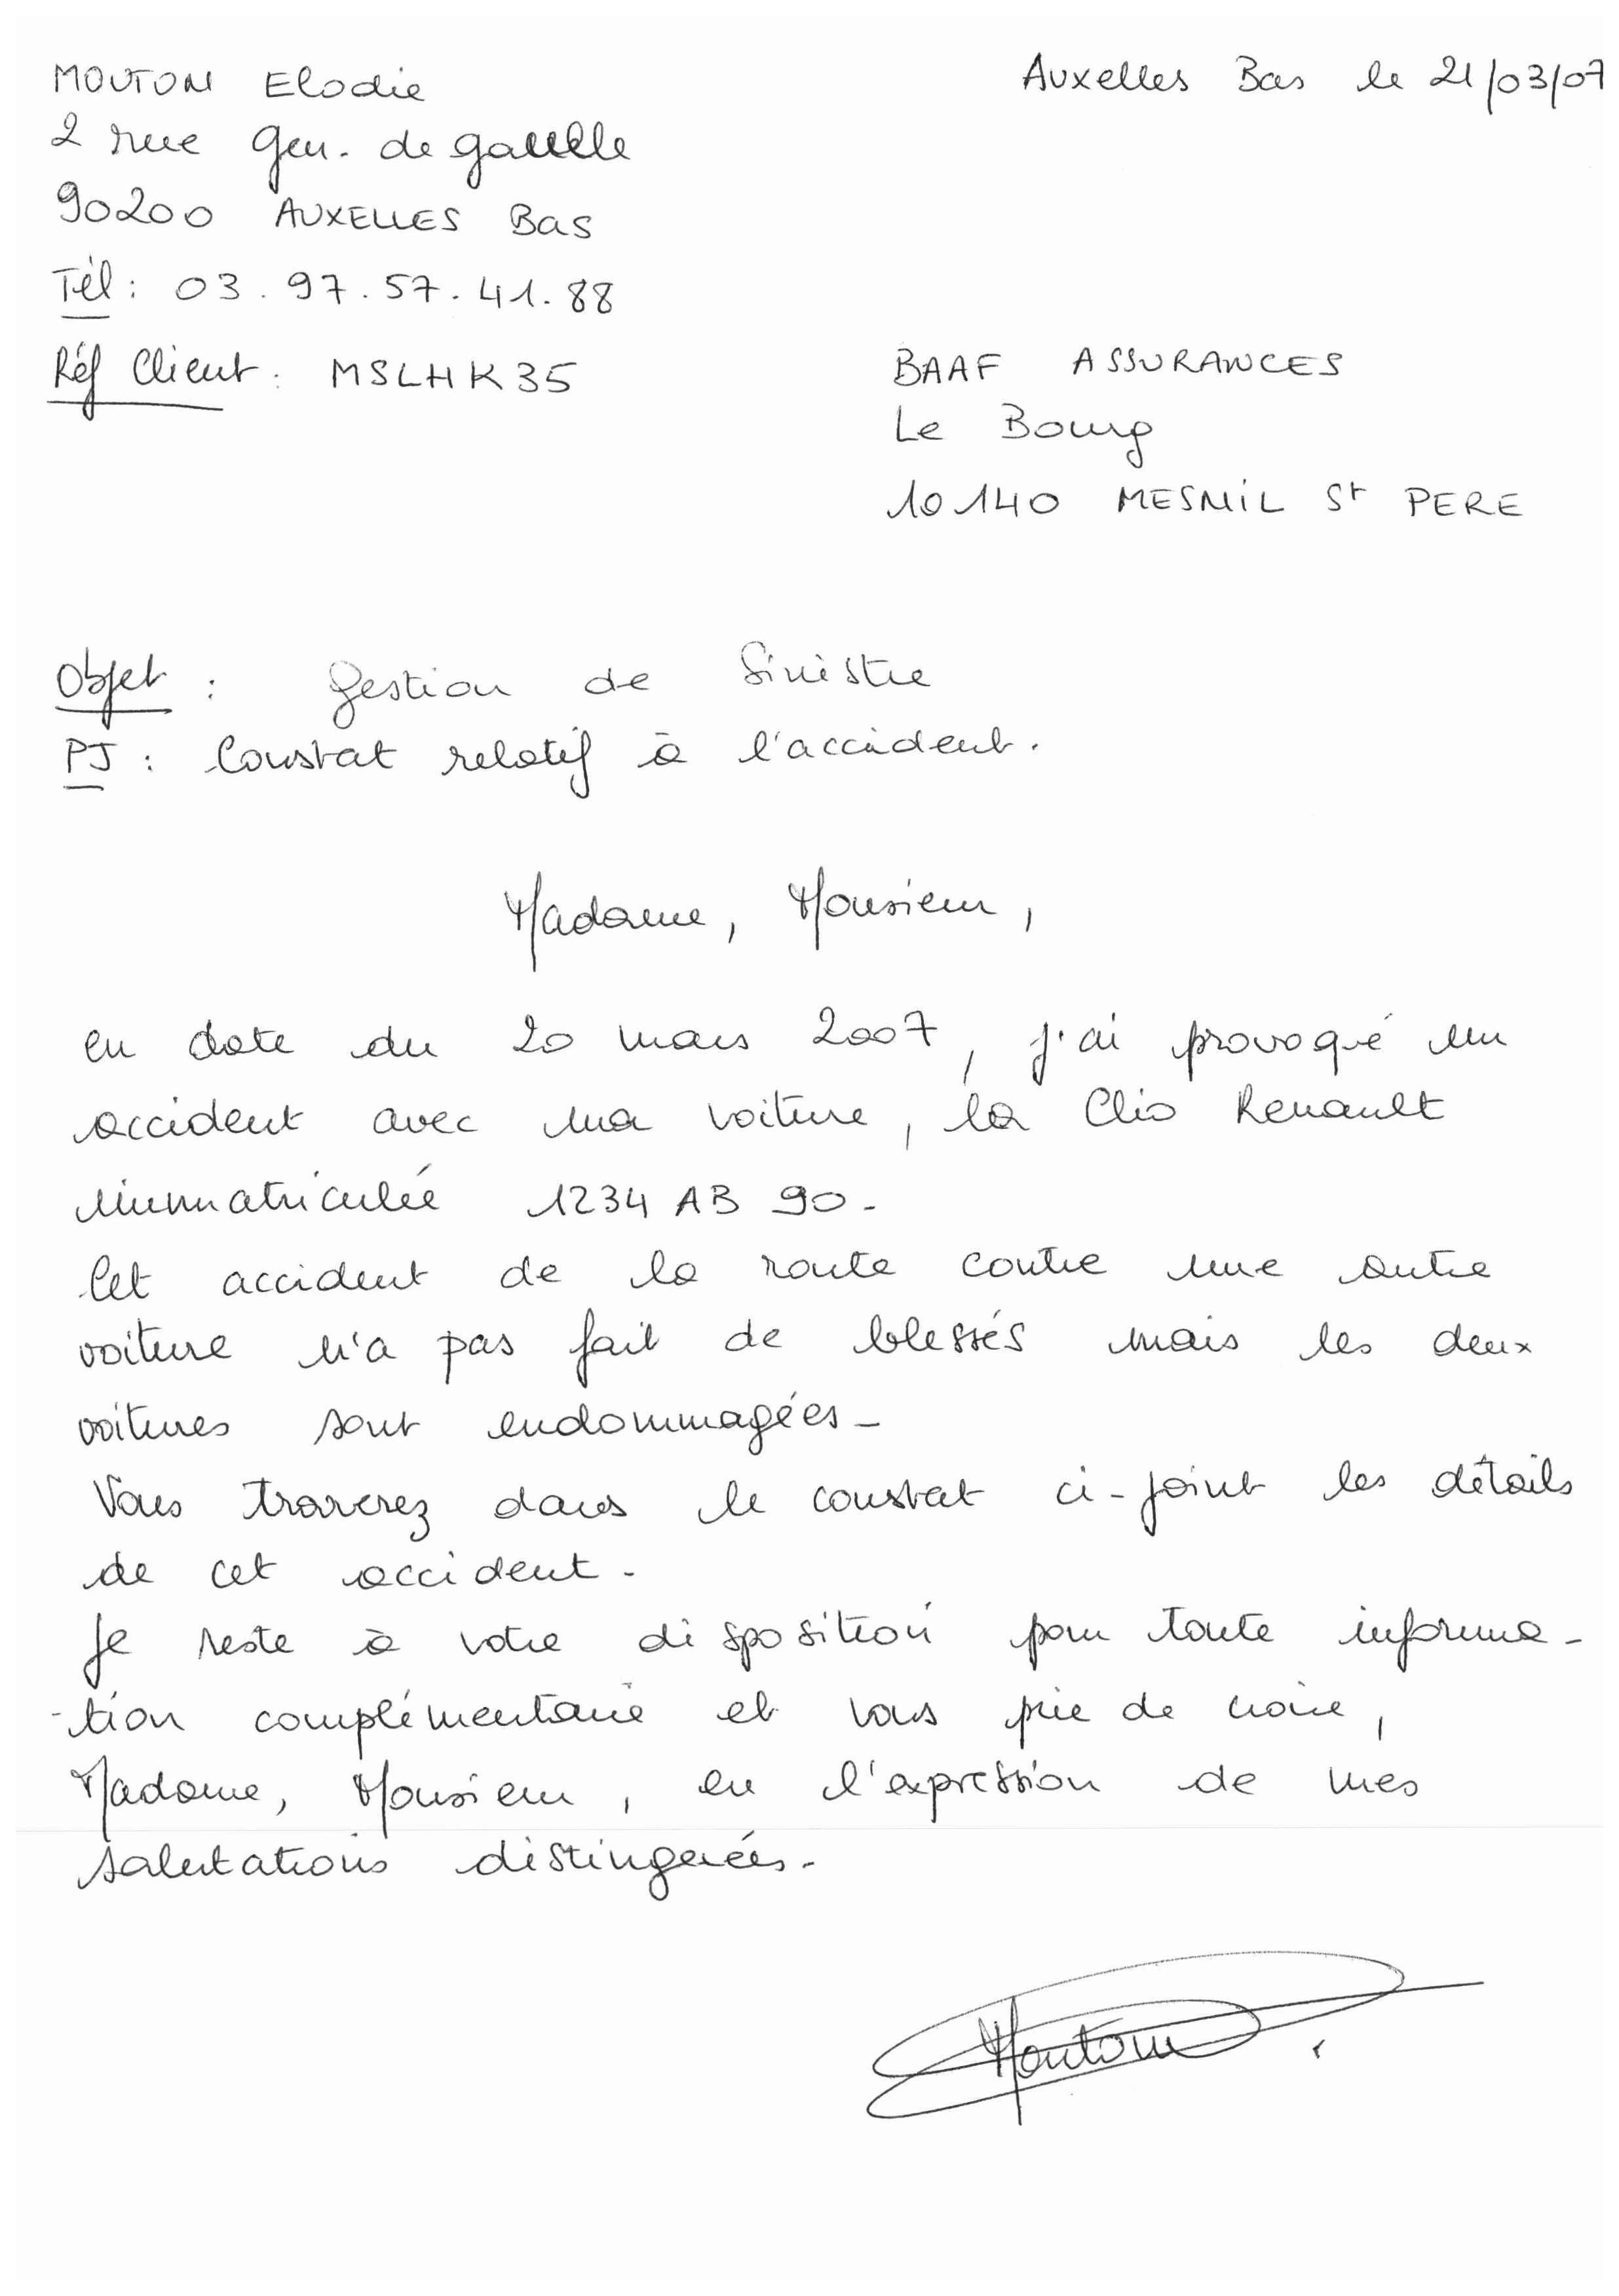 MOUTON Elodie
Auxelles Bas le 21/03/07
2 rue Gen. de gaulle
90200 AUXELLES Bas
Tél : 03.97.57.41.88
Réf Client : MSLHK35
BAAF ASSURANCES
Le Bourg
10140 MESNIL St PERE
Objet : Gestion de Sinistre
PJ : Constat relatif à l'accident.
Madame, Monsieur,
en date du 20 mars 2007, j'ai provoqué un
accident avec ma voiture, la Clio Renault
immatriculée 1234 AB 90.
Cet accident de la route contre une autre
voiture n'a pas fait de blessés mais les deux
voitures sont endommagées.
Vous trouverez dans le constat ci-joint les détails
de cet accident.
Je reste à votre disposition pour toute informa-
-tion complémentaire et vous prie de croire,
Madame, Monsieur, en l'expression de mes
salutations distinguées.
Mouton